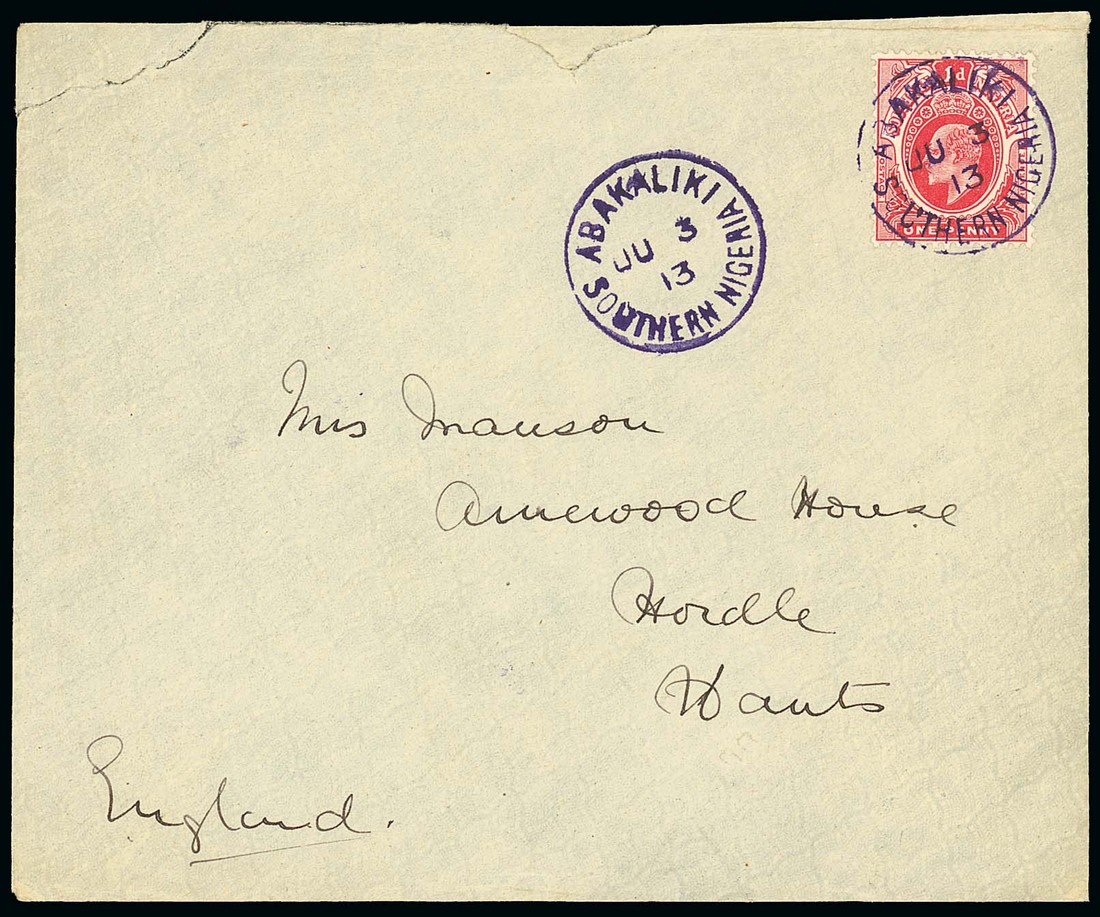 1d
ABAKALIKI
JU 3
13
SOUTHERN NIGERIA
ONE PENNY
ABAKALIKI
JU 3
13
SOUTHERN NIGERIA
Miss Manson
Arnewood House
Hordle
Hants
England.